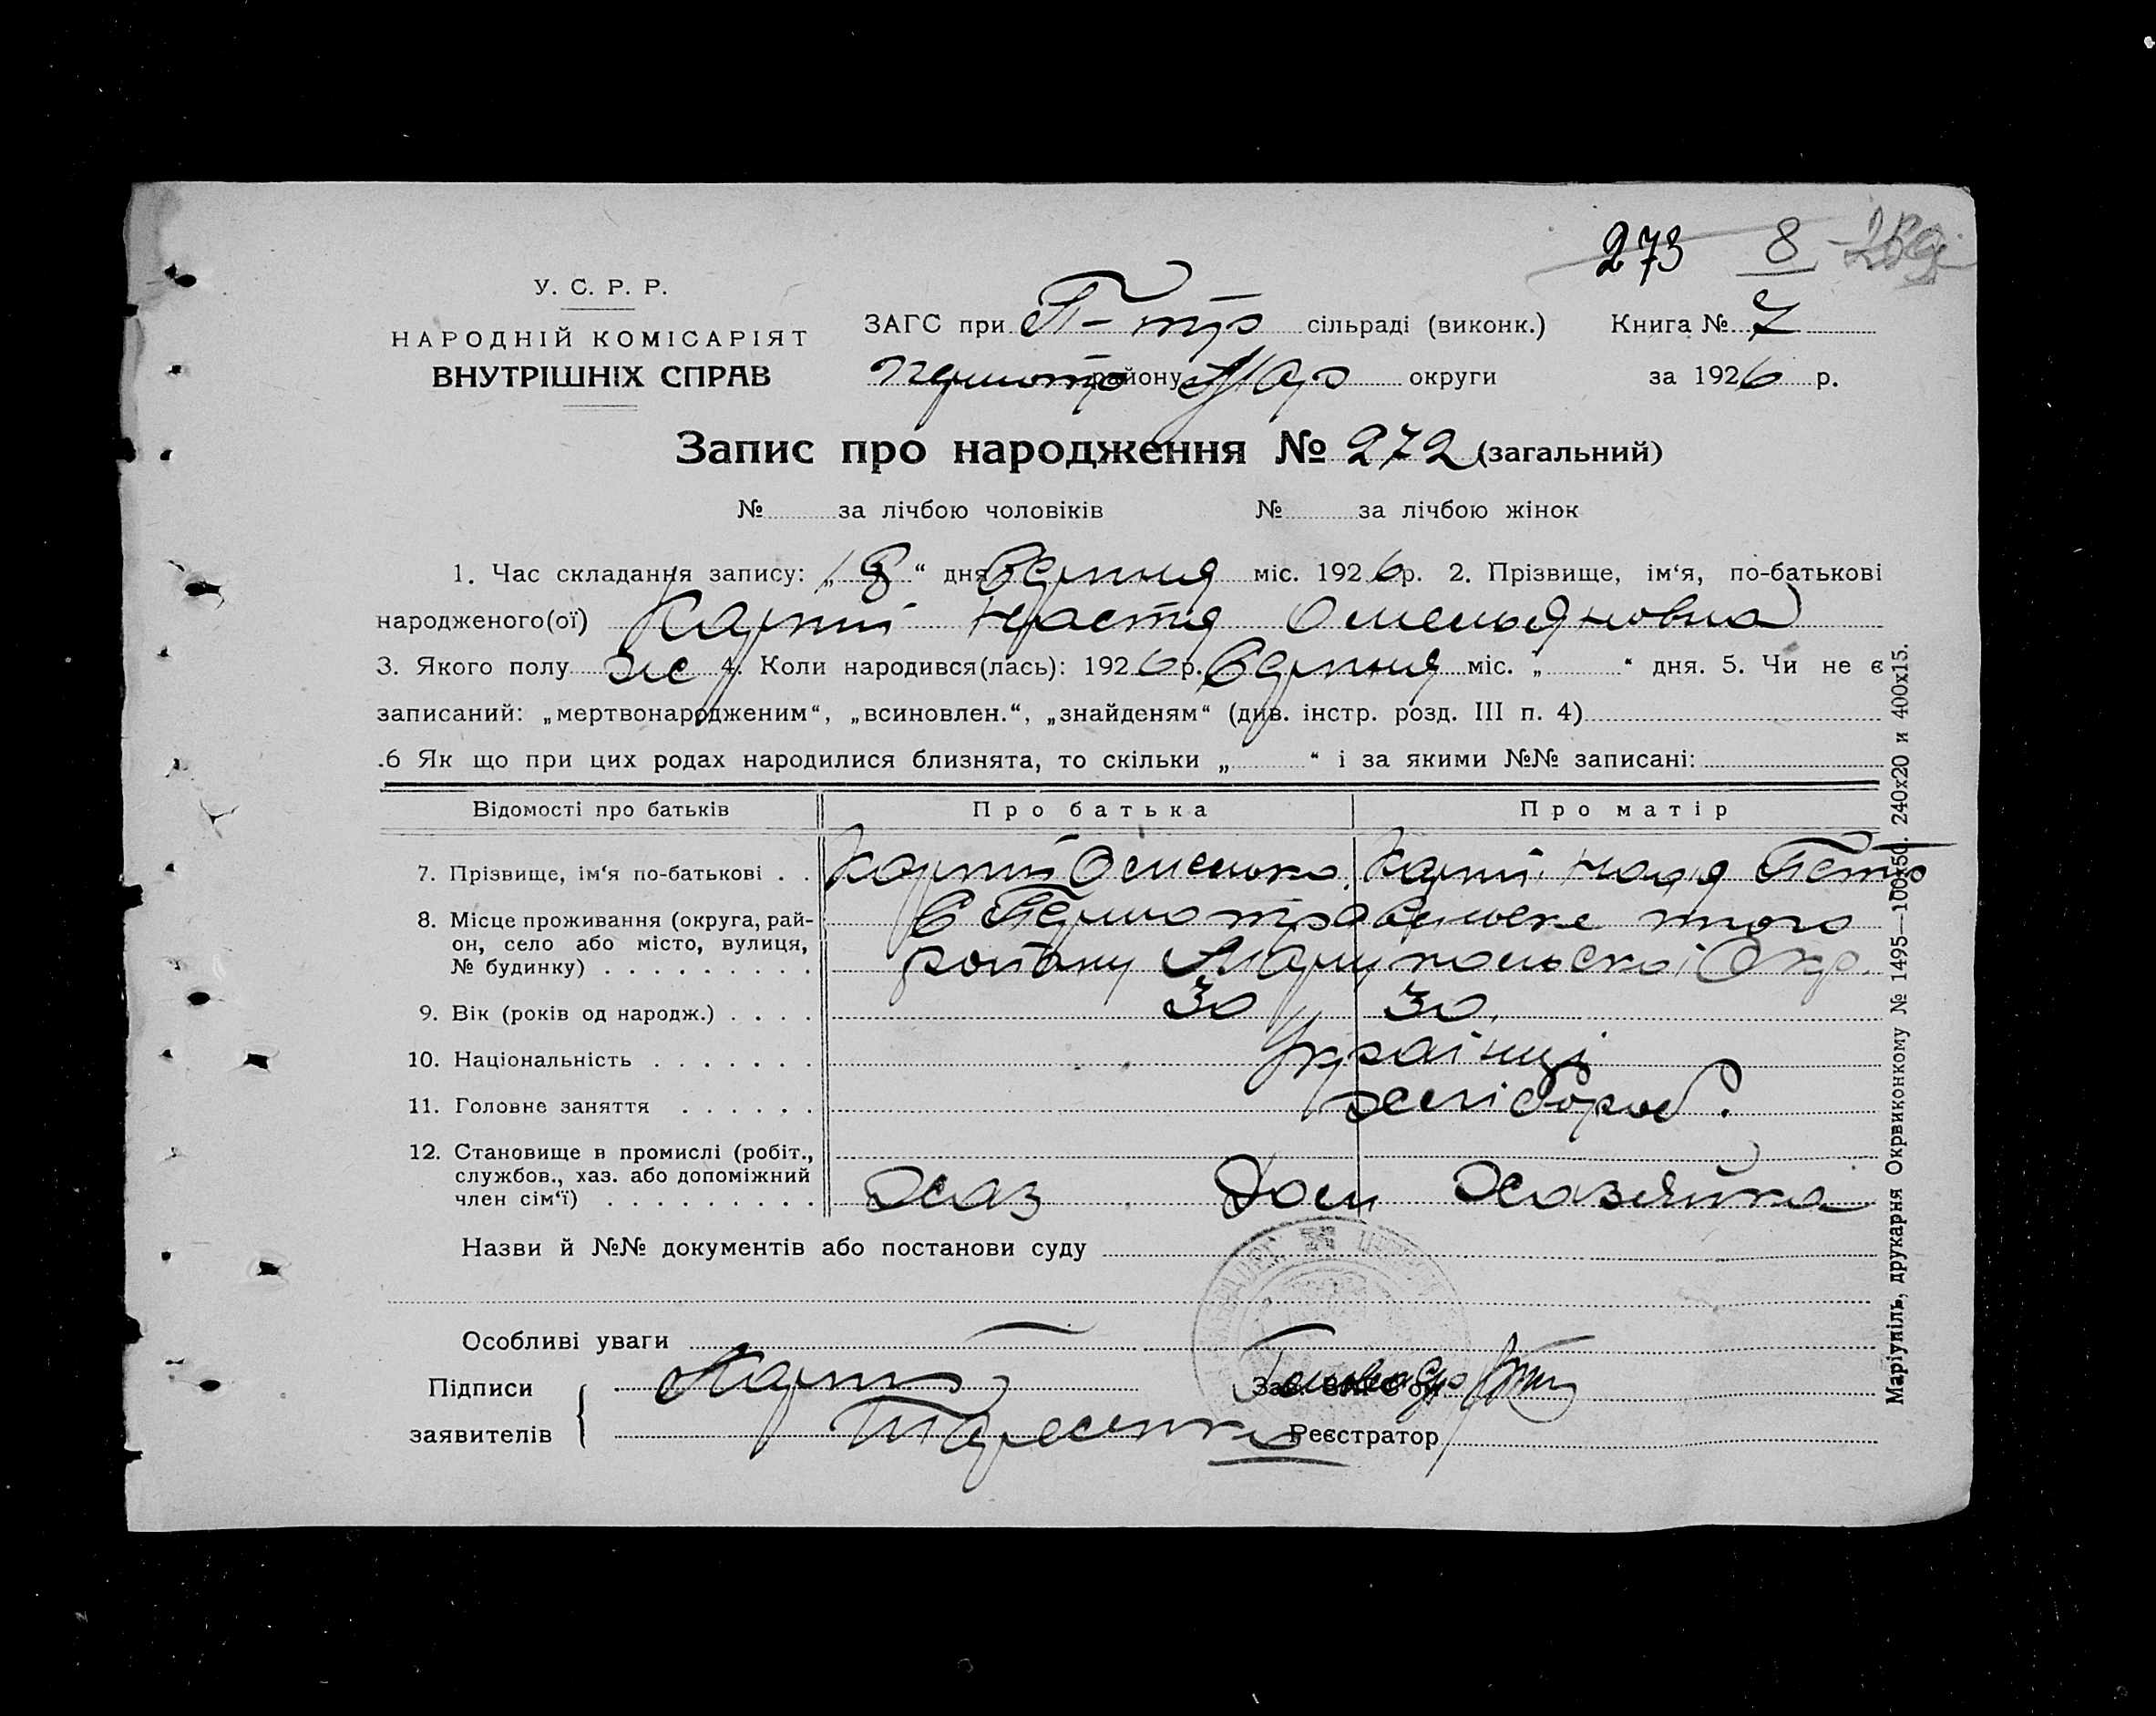 273 8
У. С. Р. Р.
НАРОДНІЙ КОМІСАРІЯТ
ВНУТРІШНІХ СПРАВ
ЗАГС при П-тр сільраді (виконк.) Книга № 7
району Мар округи за 1926 р.
Запис про народження № 272 (загальний)
№ за лічбою чоловіків № за лічбою жінок
1. Час складання запису: „18“ дня серпня міс. 1926р. 2. Прізвище, ім‘я, по-батькові
народженого(ої) Карпій Настя Омельяновна
3. Якого полу жс 4. Коли народився(лась): 1926 р. серпня міс. „ “ дня. 5. Чи не є
записаний: „мертвонародженим“, „всиновлен.“, „знайденям“ (див. інстр. розд. III п. 4)
.6 Як що при цих родах народилися близнята, то скільки „ “ і за якими №№ записані:
Відомості про батьків Про батька Про матір
7. Прізвище, ім‘я по-батькові . . Карпій Омелько. Карпій Петр
8. Місце проживання (округа, рай-
он, село або місто, вулиця,
№ будинку) . . . . . . . . . С Першотравенське того
району Маріупольскоі Окр.
9. Вік (років од народж.) . . . . 30 30.
10. Національність . . . . . . . Українці
11. Головне заняття . . . . . . хлібороб.
12. Становище в промислі (робіт.,
службов., хаз. або допоміжний
член сім‘ї) . . . . . . . . . Хаз Дом Хазяйка
Назви й №№ документів або постанови суду
Особливі уваги
Підписи Карпій
заявителів Тарасенко
Зав. ЗАГС‘ом
Реєстратор
Маріупіль, друкарня Окрвиконкому № 1495—100х50. 240х20 и 400х15.